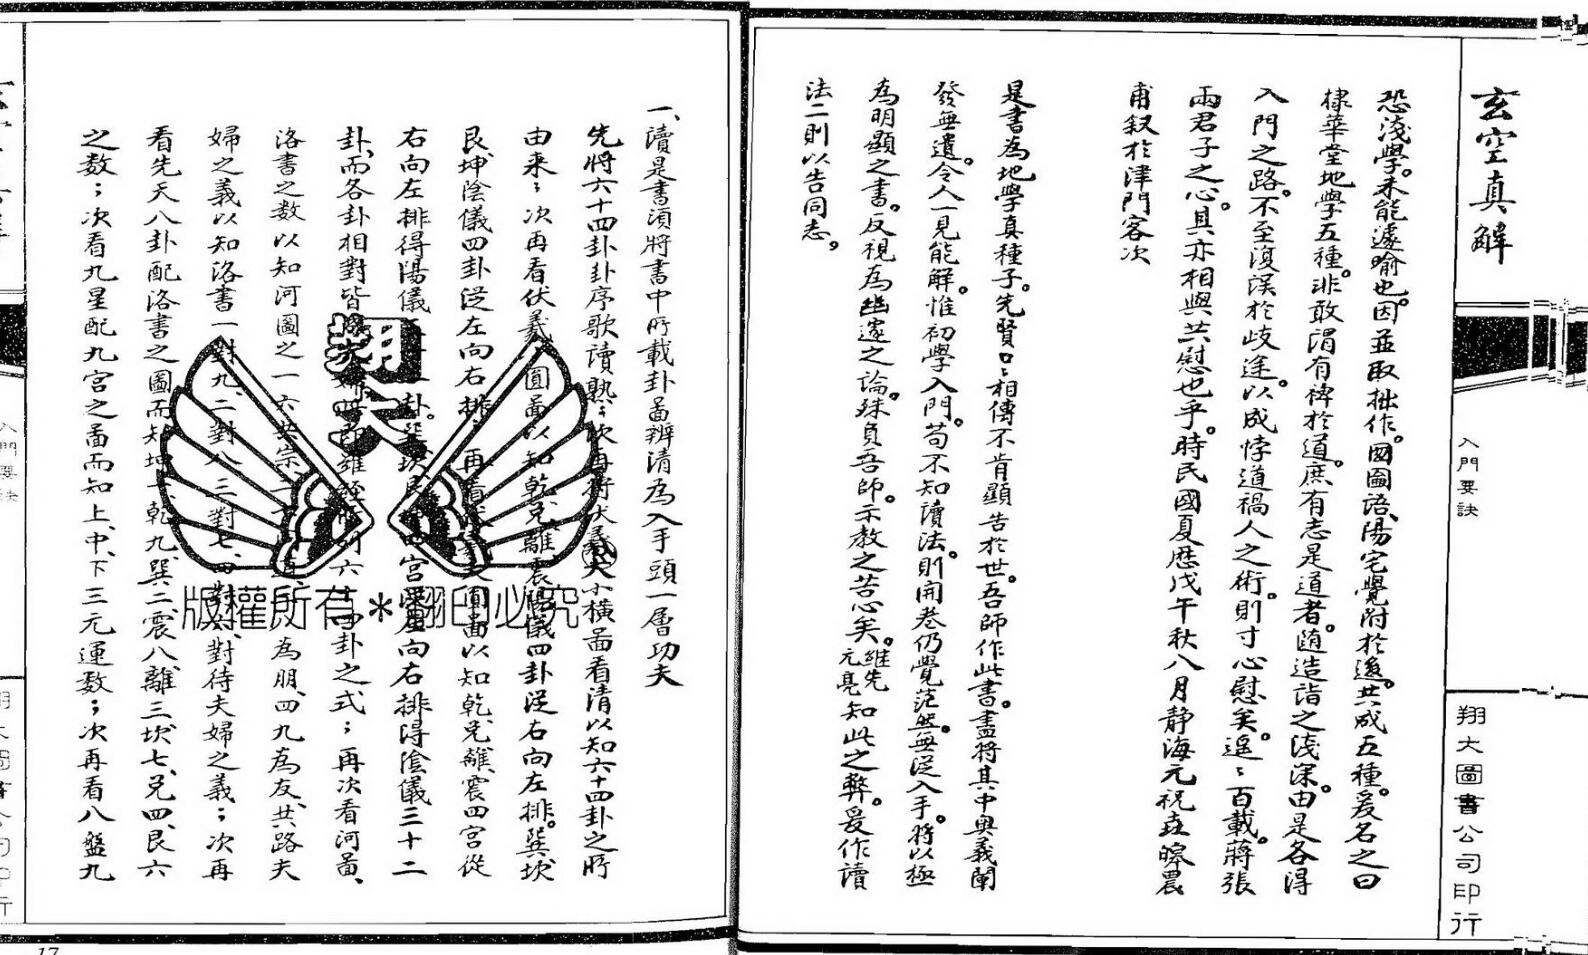 玄空真解
入門要訣
翔大圖書公司印行
恐淺學。未能遽喻也。因並取拙作。國圖語、陽宅覺附於後。共成五種。爰名之曰
棣華堂地學五種。非敢謂有裨於道。庶有志是道者。隨造詣之淺深。由是各得
入門之路。不至復誤於歧途。以成悖道禍人之術。則寸心慰矣。遥遥百載。蔣張
兩君子之心。其亦相與共慰也乎。時民國夏歷戊午秋八月靜海元祝垚皞農
甫叙於津門客次
是書為地學真種子。先賢口口相傳不肯顯告於世。吾師作此書。盡將其中奥義闡
發無遺。令人一見能解。惟初學入門。苟不知讀法。則開卷仍覺茫然。無從入手。將以極
為明顯之書。反視為幽邃之論。殊負吾師。示教之苦心矣。維先元亮知此之弊。爰作讀
法二則以告同志。
一、讀是書須將書中所載卦圖辨清為入手頭一層功夫
先將六十四卦卦序歌讀熟；次再將伏羲大小橫圖看清以知六十四卦之所
由來；次再看伏羲圓圖以知乾兌離震陽儀四卦從右向左排。巽坎
艮坤陰儀四卦從左向右排；再看圓圖以知乾兌離震四宮從
右向左排得陽儀三十二卦。巽坎艮坤四宮從左向右排得陰儀三十二
卦而各卦相對皆六十四卦之式；再次看河圖、
洛書之數以知河圖之一六共宗為朋、四九為友共路夫
婦之義以知洛書一對九、二對八三對七、四對六對待夫婦之義；次再
看先天八卦配洛書之圖而知坤一、乾九、巽二、震八、離三、坎七、兌四、艮六
之数；次看九星配九宮之圖而知上、中、下三元運数；次再看八盤九
翔大
版權所有＊翻印必究
17